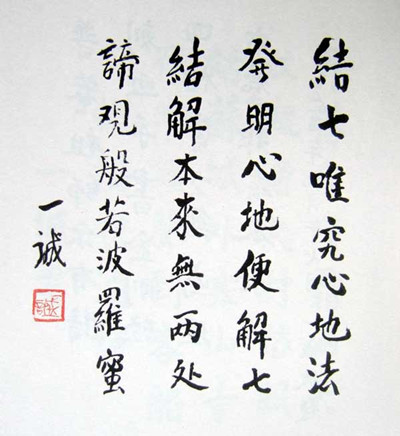 結七唯究心地法
發明心地便解七
結解本來無两处
諦观般若波羅蜜
一誠